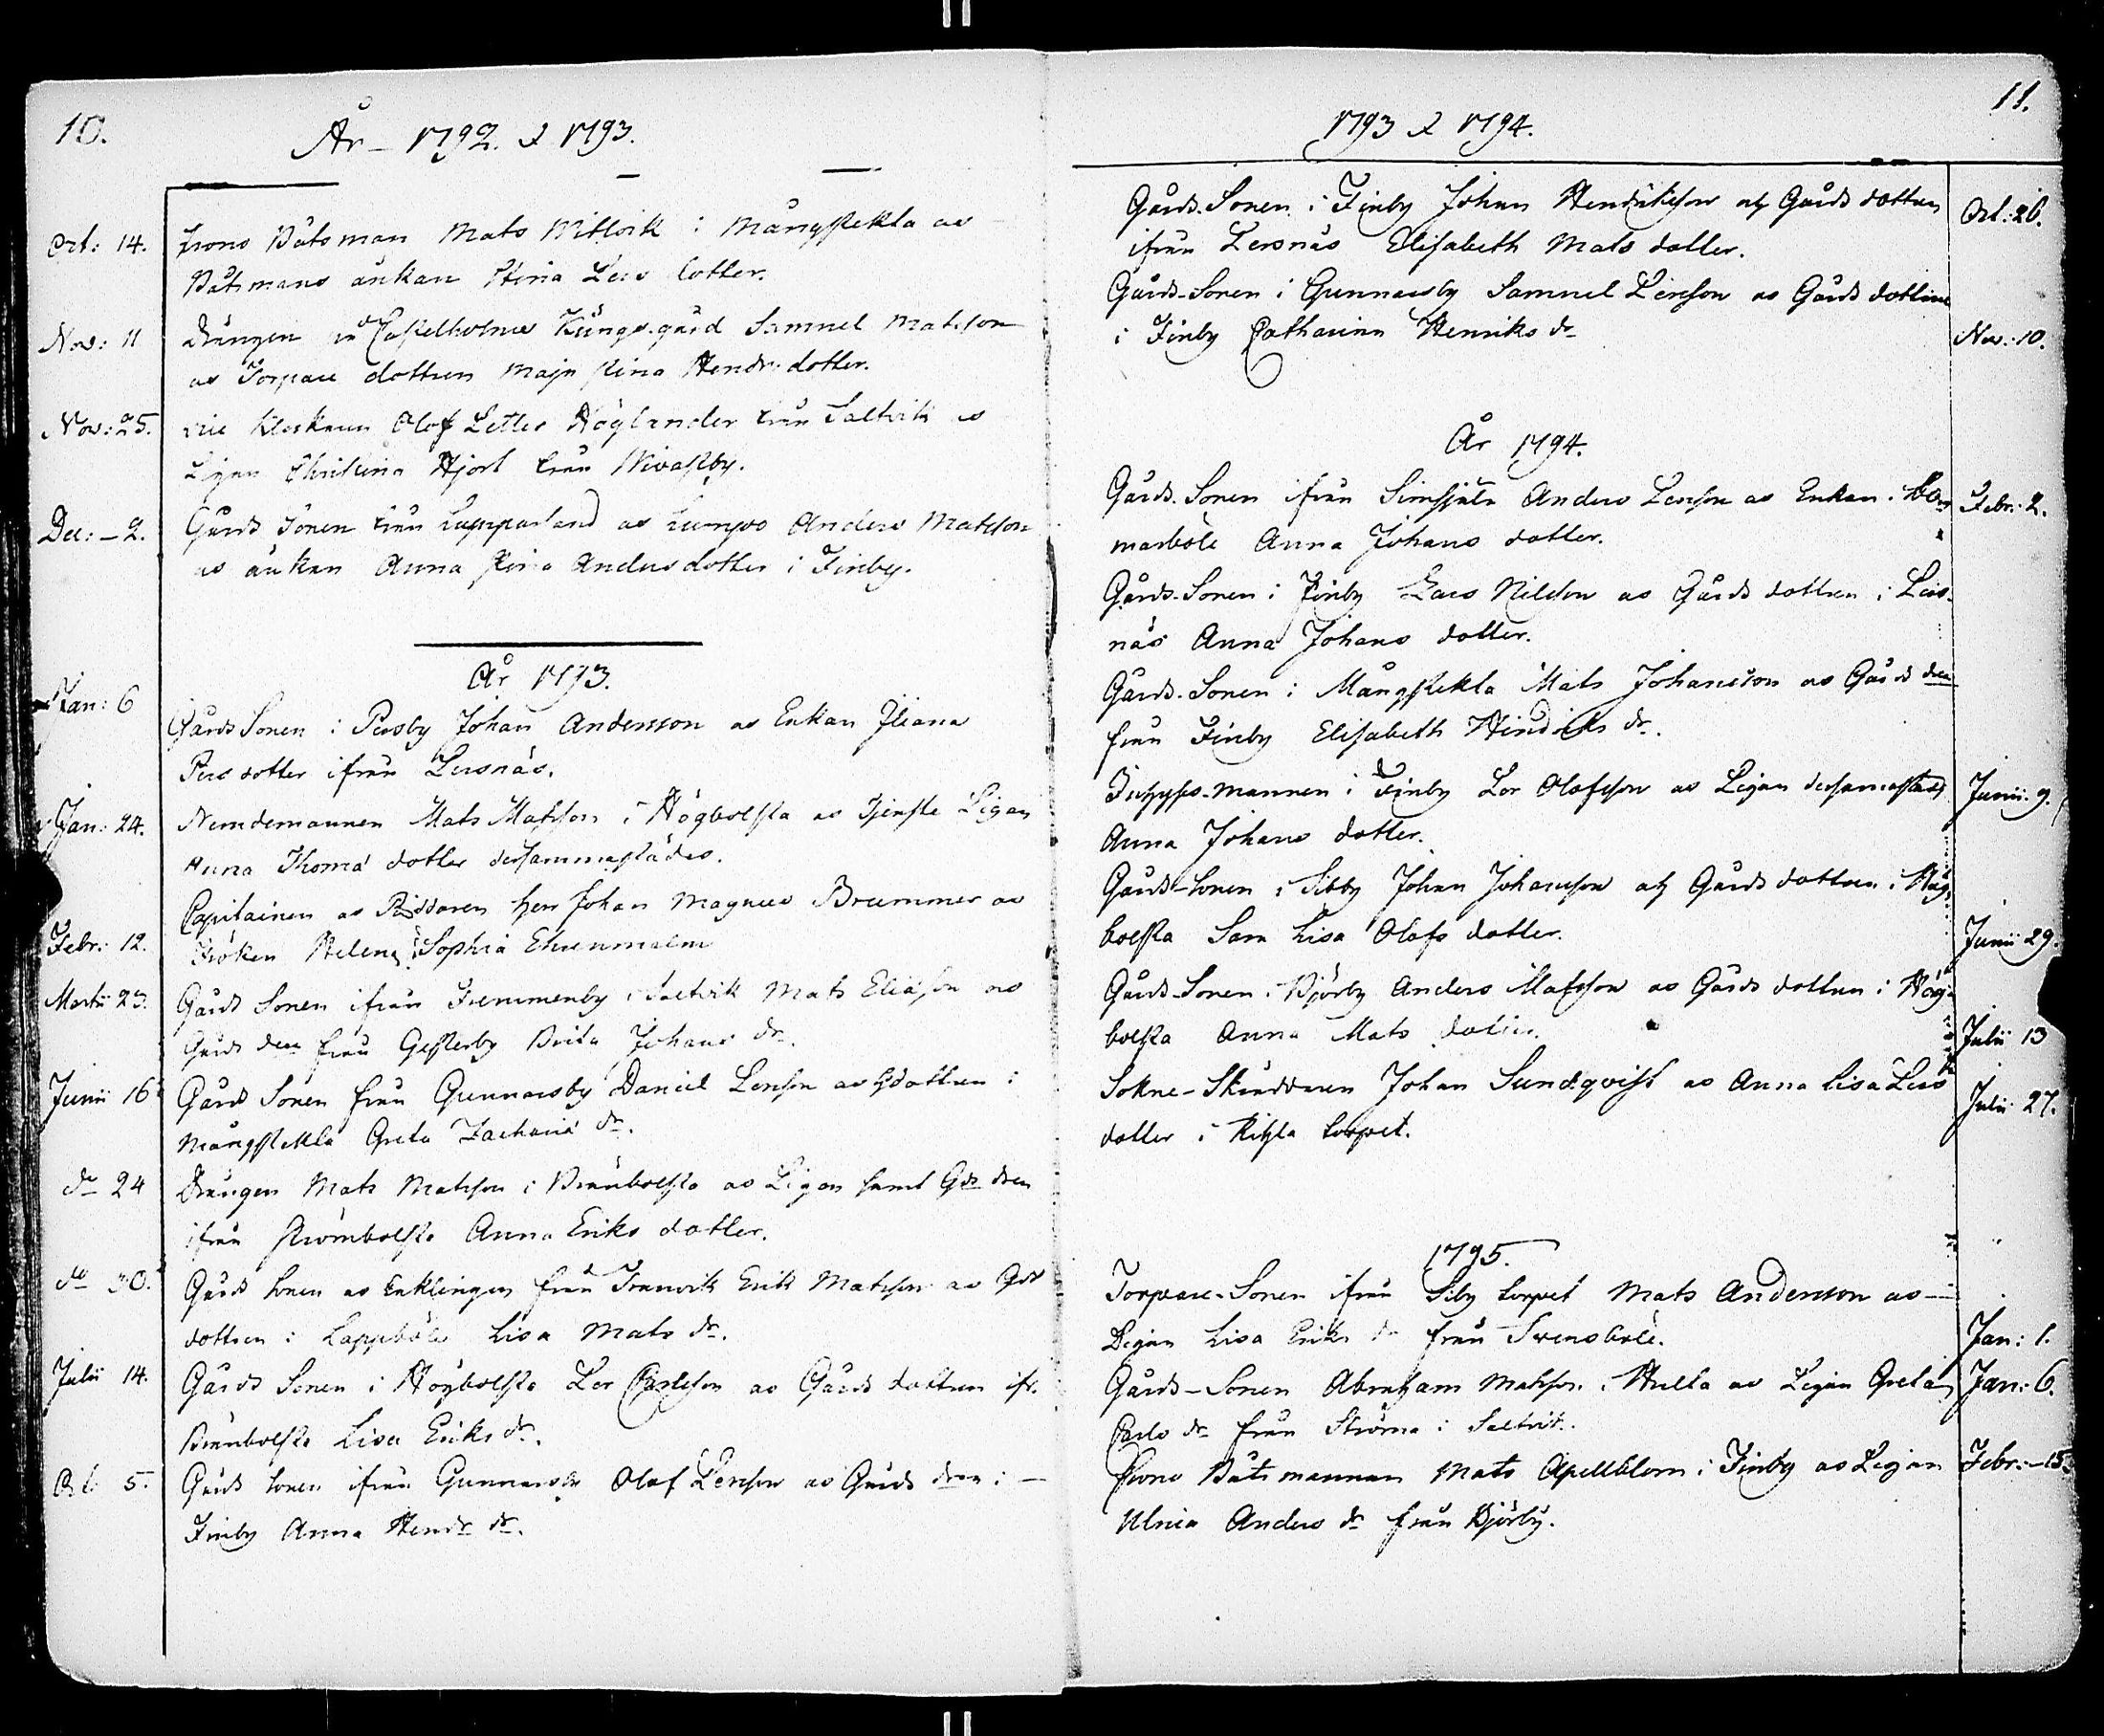 10.
År - 1792. & 1793.
Oct: 14. Crono Båtsman Mats Witlock i Mångstekta as
Båtsmans änkan Stina Lars dotter.
Nov: 11 Drängen vid Castelholms Kungs-gård Samuel Matsson
as Torpare dottren Maja Stina Hendr: dotter.
Nov: 25. vice Klockaren Olof Petter Höglander från Saltvik as
Pigan Christina Hjort från Nivastby.
Dec: - 2. Gårds Sonen från Lappo Anders Matsson
as änkan Anna Stina Andersdotter i Finby.
År 1793.
Jan: 6 Gårds Sonen i Persby Johan Andersson as Enkan Juliana
Pers dotter ifrån Larsnäs.
Jan: 24. Nemdemannen Mats Matsson i Högbolsta as Tjenste Pigan
Anna Thomæ dotter dersammastädes.
Capitainen as Riddaren Herr Johan Magnus Brummer as
Febr: 12. Fröken Helena Sophia Ehrenmalm
Martii 23. Gårds Sonen ifrån Fremmenby i Saltvik Mats Eliasson as
Gårds dren från Gesterby Brita Johans dr.
Junii 16 Gårds Sonen från Gunnarsby Daniel Larsson as Gdottren i
Mångstekta Greta Zachariæ dr.
do 24 Drängen Mats Matsson i Brånbolsta as Pigan samt Gds dren
ifrån Strömbolsta Anna Eriks dotter.
do 30. Gårds Sonen as Enklingen från Tranvik Erik Matsson as Gds
dottren i Lappböle Lisa Mats dr.
Julii 14. Gårds Sonen i Högbolsta Lars Carlsson as Gårds dottren ifr.
Brånbolsta Lisa Eriks dr.
Oct: 5. Gårds Sonen ifrån Gunnarsby Olof Larsson as Gårds dren i -
Finby Anna Hendr dr.
11.
1793 & 1794.
Gårds-Sonen i Finby Johan Hendriksson och Gårds dottren Oct: 26.
ifrån Larsnäs Elisabeth Mats dotter.
Gårds-Sonen i Gunnarsby Samuel Larsson as Gårds dottren
i Finby Catharina Henriks dr Nov: 10.
År 1794.
Gårds-Sonen ifrån Simskjäla Anders Larsson as Enkan i Bom- Febr: 2.
marböle Anna Johans dotter.
Gårds-Sonen i Finby Lars Nilsson as Gårds dottren i Lars-
näs Anna Johans dotter.
Gårds-Sonen i Mångstekta Mats Johansson as Gårds dren
från Finby Elisabeth Hindriks dr.
Inhyses-mannen i Finby Lars Olofsson as Pigan dersammastäds Junii 9.
Anna Johans dotter.
Gårds-Sonen i Sibby Johan Johansson och Gårds dottren i Hög-
bolsta Sara Lisa Olofs dotter. Junii 29.
Gårds-Sonen i Björby Anders Matsson as Gårds dottren i Hög-
bolsta Anna Mats dotter. Julii 13
Sokne-Skräddaren Johan Sundqvist as Anna Lisa Lars
dotter i torpet. Julii 27.
1795.
Torpare-Sonen ifrån Siby torpet Mats Andersson as -
Pigan Lisa Eriks dr från Svensböle. Jan: 1.
Gårds-Sonen Abraham Matsson i Hulta as Pigan Greta Jan: 6.
Carls dr från Ströma i Saltvik.
Crono Båtsmannen Mats Apellblom i Finby as Pigan Febr: - 15.
Ulrica Anders dr från Björby.